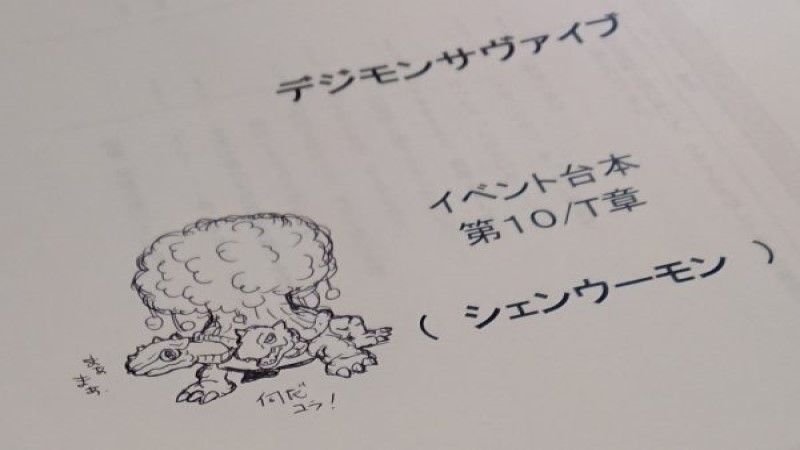 デジモンサヴァイブ
イベント台本
第10/T章
( シェンウーモン )
まぁ
まぁ.
何だ
コラ!